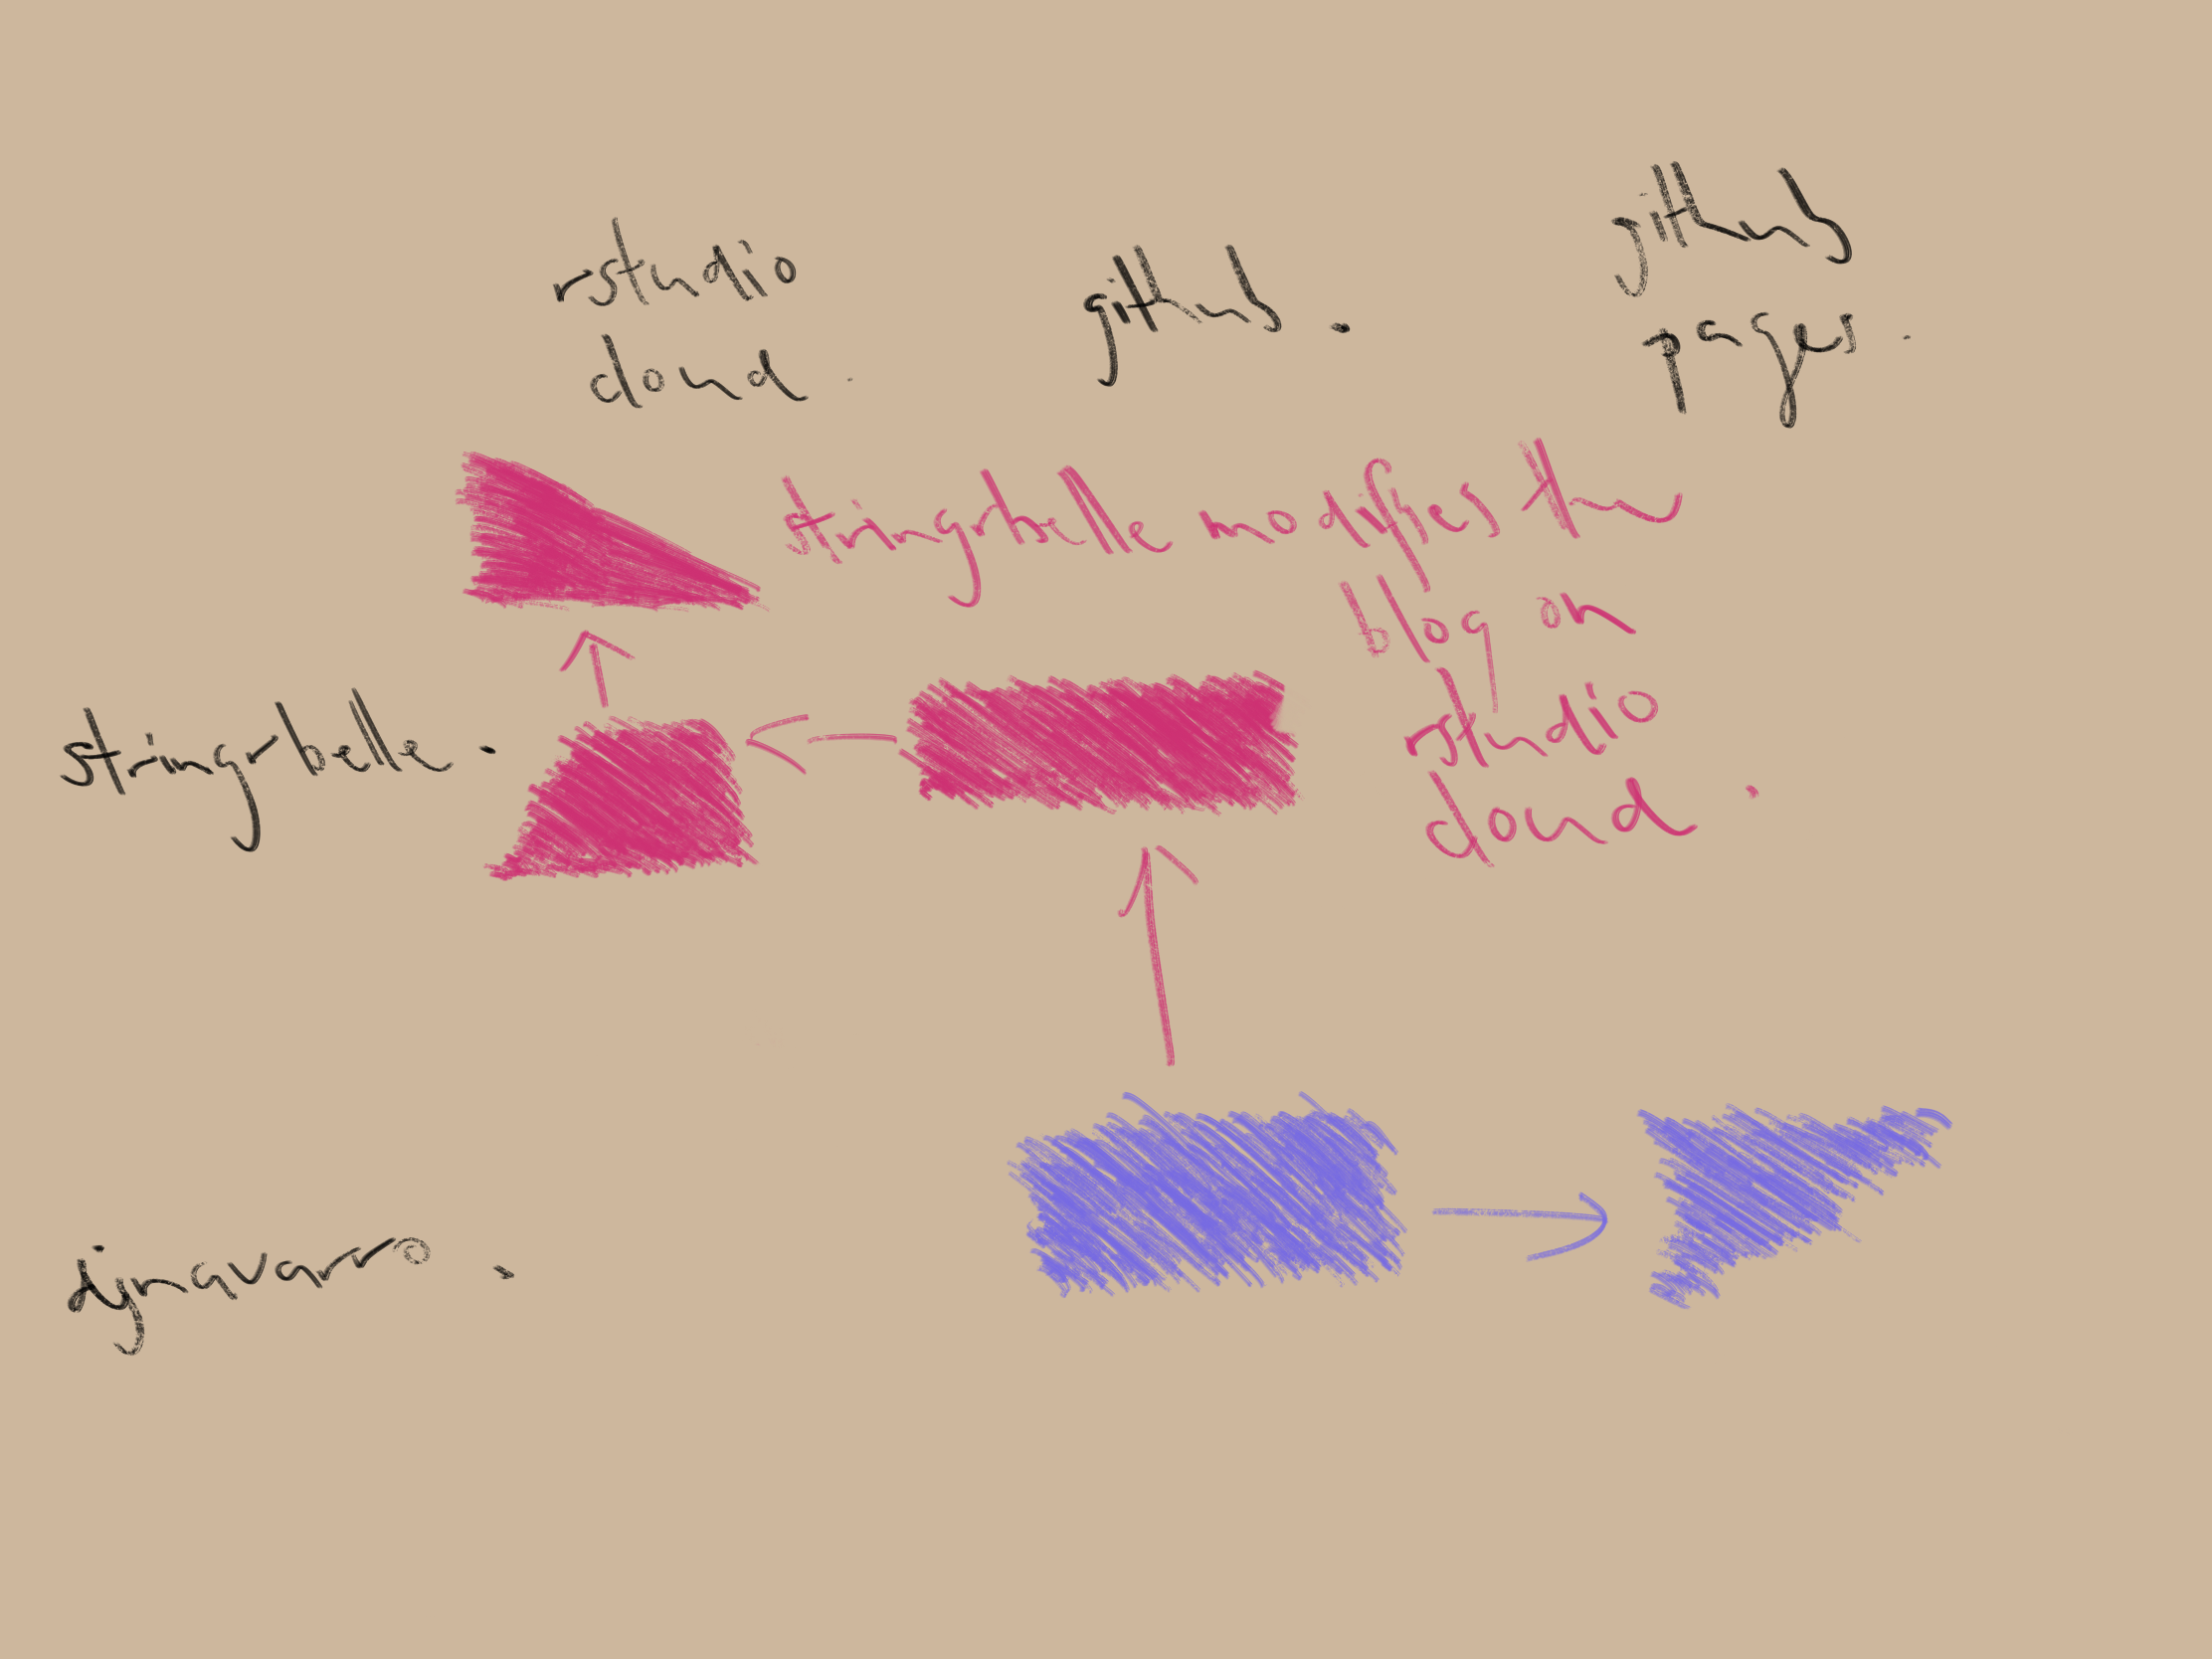 rstudio
cloud.
github.
github
pages.
stringrbelle modifies the
blog on
rstudio
cloud.
stringrbelle.
djnavarro.